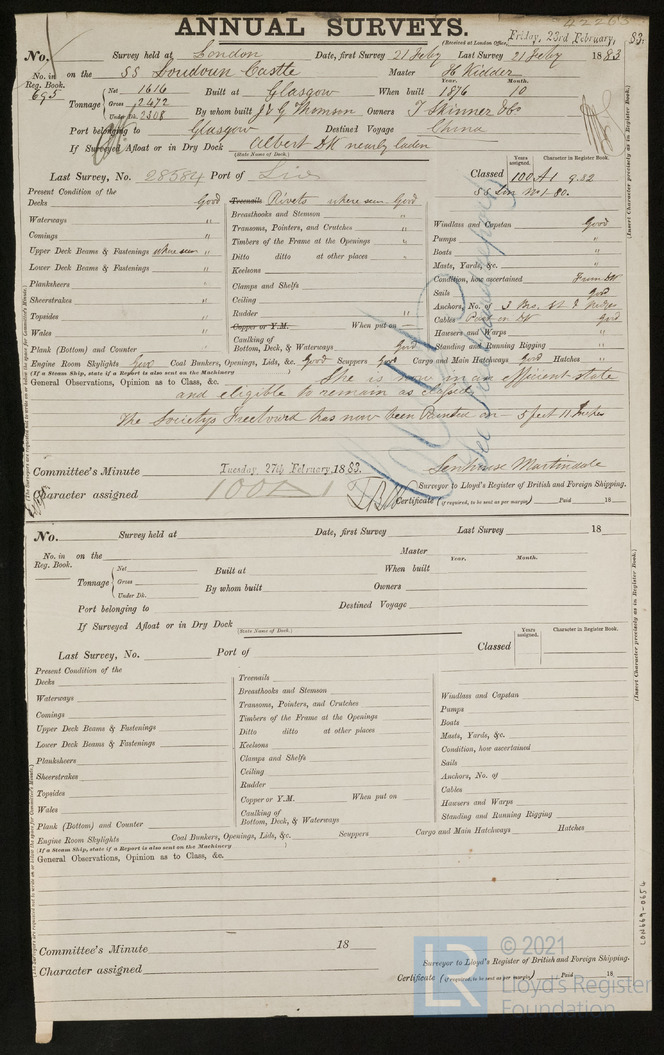 ANNUAL SURVEYS.
42263
(Received at London Office, Friday, 23rd February, 83.
No. Survey held at London Date, first Survey 21 Feby Last Survey 21 Feby 1883
No. in Reg. Book. 695 on the SS Loudoun Castle Master H Kidder
Tonnage Net 1616 Gross 2472 Under Dk. 2308 Built at Glasgow When built Year. 1876 Month. 10
By whom built J & G Thomson Owners T Skinner & Co
Port belonging to Glasgow Destined Voyage China
If Surveyed Afloat or in Dry Dock Albert DK nearly laden
(State Name of Dock.)
Last Survey, No. 28584 Port of Liv Classed Years assigned. 100A1 Character in Register Book. 9.82
SS. Lon No 1-80.
Present Condition of the
Decks Good
Waterways "
Comings "
Upper Deck Beams & Fastenings where seen "
Lower Deck Beams & Fastenings "
Planksheers "
Sheerstrakes "
Topsides "
Wales "
Plank (Bottom) and Counter "
Treenails Rivets where seen Good
Breasthooks and Stemson "
Transoms, Pointers, and Crutches "
Timbers of the Frame at the Openings "
Ditto ditto at other places "
Keelsons
Clamps and Shelfs
Ceiling
Rudder "
Copper or Y.M. When put on
Caulking of Bottom, Deck, & Waterways Good
Windlass and Capstan Good
Pumps "
Boats "
Masts, Yards, &c. "
Condition, how ascertained From DK
Sails Good
Anchors, No. of 3 Brs, St &
Cables Part on DK Good
Hawsers and Warps "
Standing and Running Rigging "
Engine Room Skylights Good Coal Bunkers, Openings, Lids, &c. Good Scuppers Good Cargo and Main Hatchways Good Hatches "
(If a Steam Ship, state if a Report is also sent on the Machinery
General Observations, Opinion as to Class, &c. She is now in an efficient state
and eligible to remain as classed
The Societys Freeboard has now been Painted on - 5 feet 11 Inches
Committee's Minute Tuesday, 27th February, 1883. Senhouse Martindale
Surveyor to Lloyd's Register of British and Foreign Shipping.
Character assigned 100A1
Certificate (if required, to be sent as per margin) Paid 18
(Insert Character precisely as in Register Book.)
No. Survey held at Date, first Survey Last Survey 18
No. in Reg. Book. on the Master
Tonnage Net Gross Under Dk. Built at When built Year. Month.
By whom built Owners
Port belonging to Destined Voyage
If Surveyed Afloat or in Dry Dock
(State Name of Dock.)
Last Survey, No. Port of Classed Years assigned. Character in Register Book.
Present Condition of the
Decks
Waterways
Comings
Upper Deck Beams & Fastenings
Lower Deck Beams & Fastenings
Planksheers
Sheerstrakes
Topsides
Wales
Plank (Bottom) and Counter
Treenails
Breasthooks and Stemson
Transoms, Pointers, and Crutches
Timbers of the Frame at the Openings
Ditto ditto at other places
Keelsons
Clamps and Shelfs
Ceiling
Rudder
Copper or Y.M. When put on
Caulking of Bottom, Deck, & Waterways
Windlass and Capstan
Pumps
Boats
Masts, Yards, &c.
Condition, how ascertained
Sails
Anchors, No. of
Cables
Hawsers and Warps
Standing and Running Rigging
Engine Room Skylights Coal Bunkers, Openings, Lids, &c. Scuppers Cargo and Main Hatchways Hatches
(If a Steam Ship, state if a Report is also sent on the Machinery
General Observations, Opinion as to Class, &c.
(Insert Character precisely as in Register Book.)
LON669-0654
Committee's Minute 18
Surveyor to Lloyd's Register of British and Foreign Shipping.
Character assigned
Certificate (if required, to be sent as per margin) Paid 18
LR © 2021
Lloyd's Register
Foundation